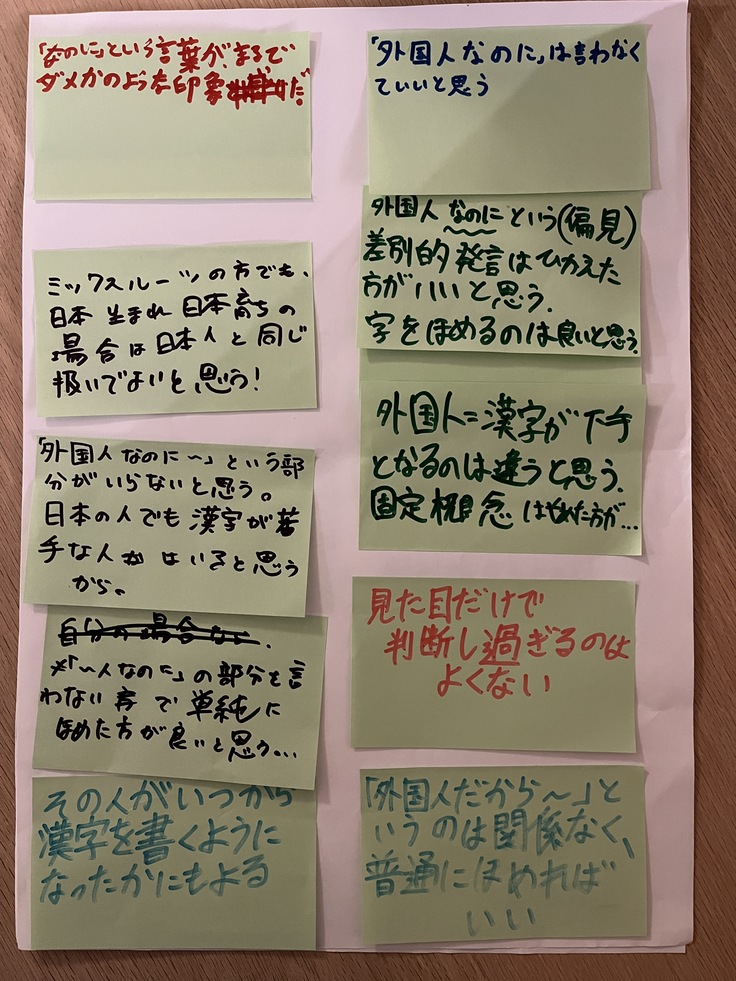 「なのに」という言葉が、まるで
ダメかのような印象だ。
ミックスルーツの方でも、
日本生まれ日本育ちの
場合は日本人と同じ
扱いでよいと思う!
「外国人なのに〜」という部
分がいらないと思う。
日本の人でも漢字が苦
手な人はいると思う
から。
自分の場合なら、
※「〜人なのに」の部分を言
わない方で単純に
ほめた方が良いと思う...
その人がいつから
漢字を書くように
なったかにもよる
「外国人なのに」は言わなく
ていいと思う
外国人なのにという(偏見)
差別的発言はひかえた
方がいいと思う.
字をほめるのは良いと思う.
外国人=漢字が下手
となるのは違うと思う.
固定概念はやめた方が...
見た目だけで
判断し過ぎるのは
よくない
「外国人だから〜」と
いうのは関係なく、
普通にほめれば
いい